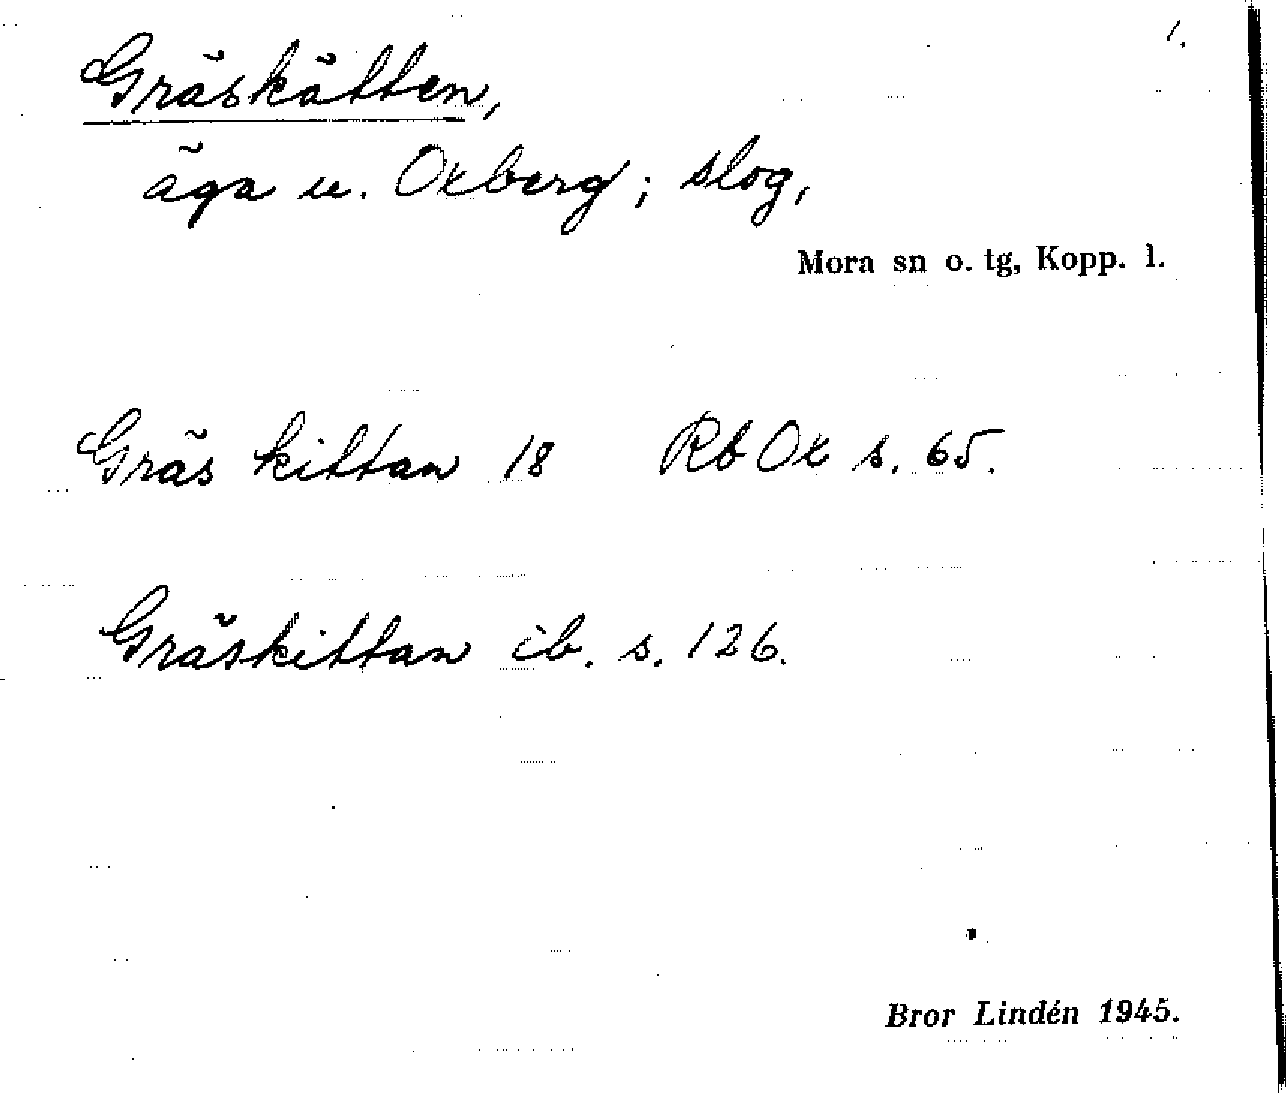 1.
Gräskätten,
äga u. Oxberg; slog,
Mora sn o. tg, Kopp. l.
Gräs kittan 18 Rb Ox s. 65.
Gräskittan ib. s. 126.
Bror Lindén 1945.